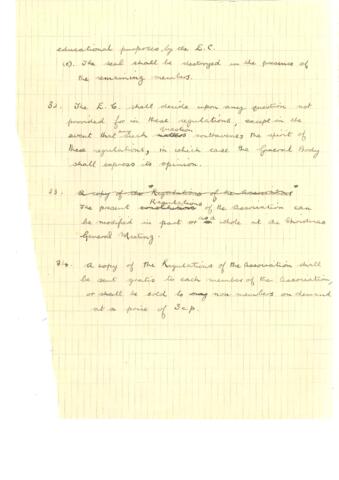 educational purposes, by the E.C.
(e). The seal shall be destroyed in the presence of
the remaining members.
32. The E.C. shall decide upon any question not
provided for in these regulations, except in the
event that such question contravenes the spirit of
these regulations, in which case the General Body
shall express its opinion.
33. A copy of the "Regulations of the Association"
The present Regulations of the Association can
be modified in part or as a whole at a
General Meeting.
34. A copy of the Regulations of the Association shall
be sent gratis to each member of the Association,
or shall be sold to non members on demand
at a price of 3 c.p.